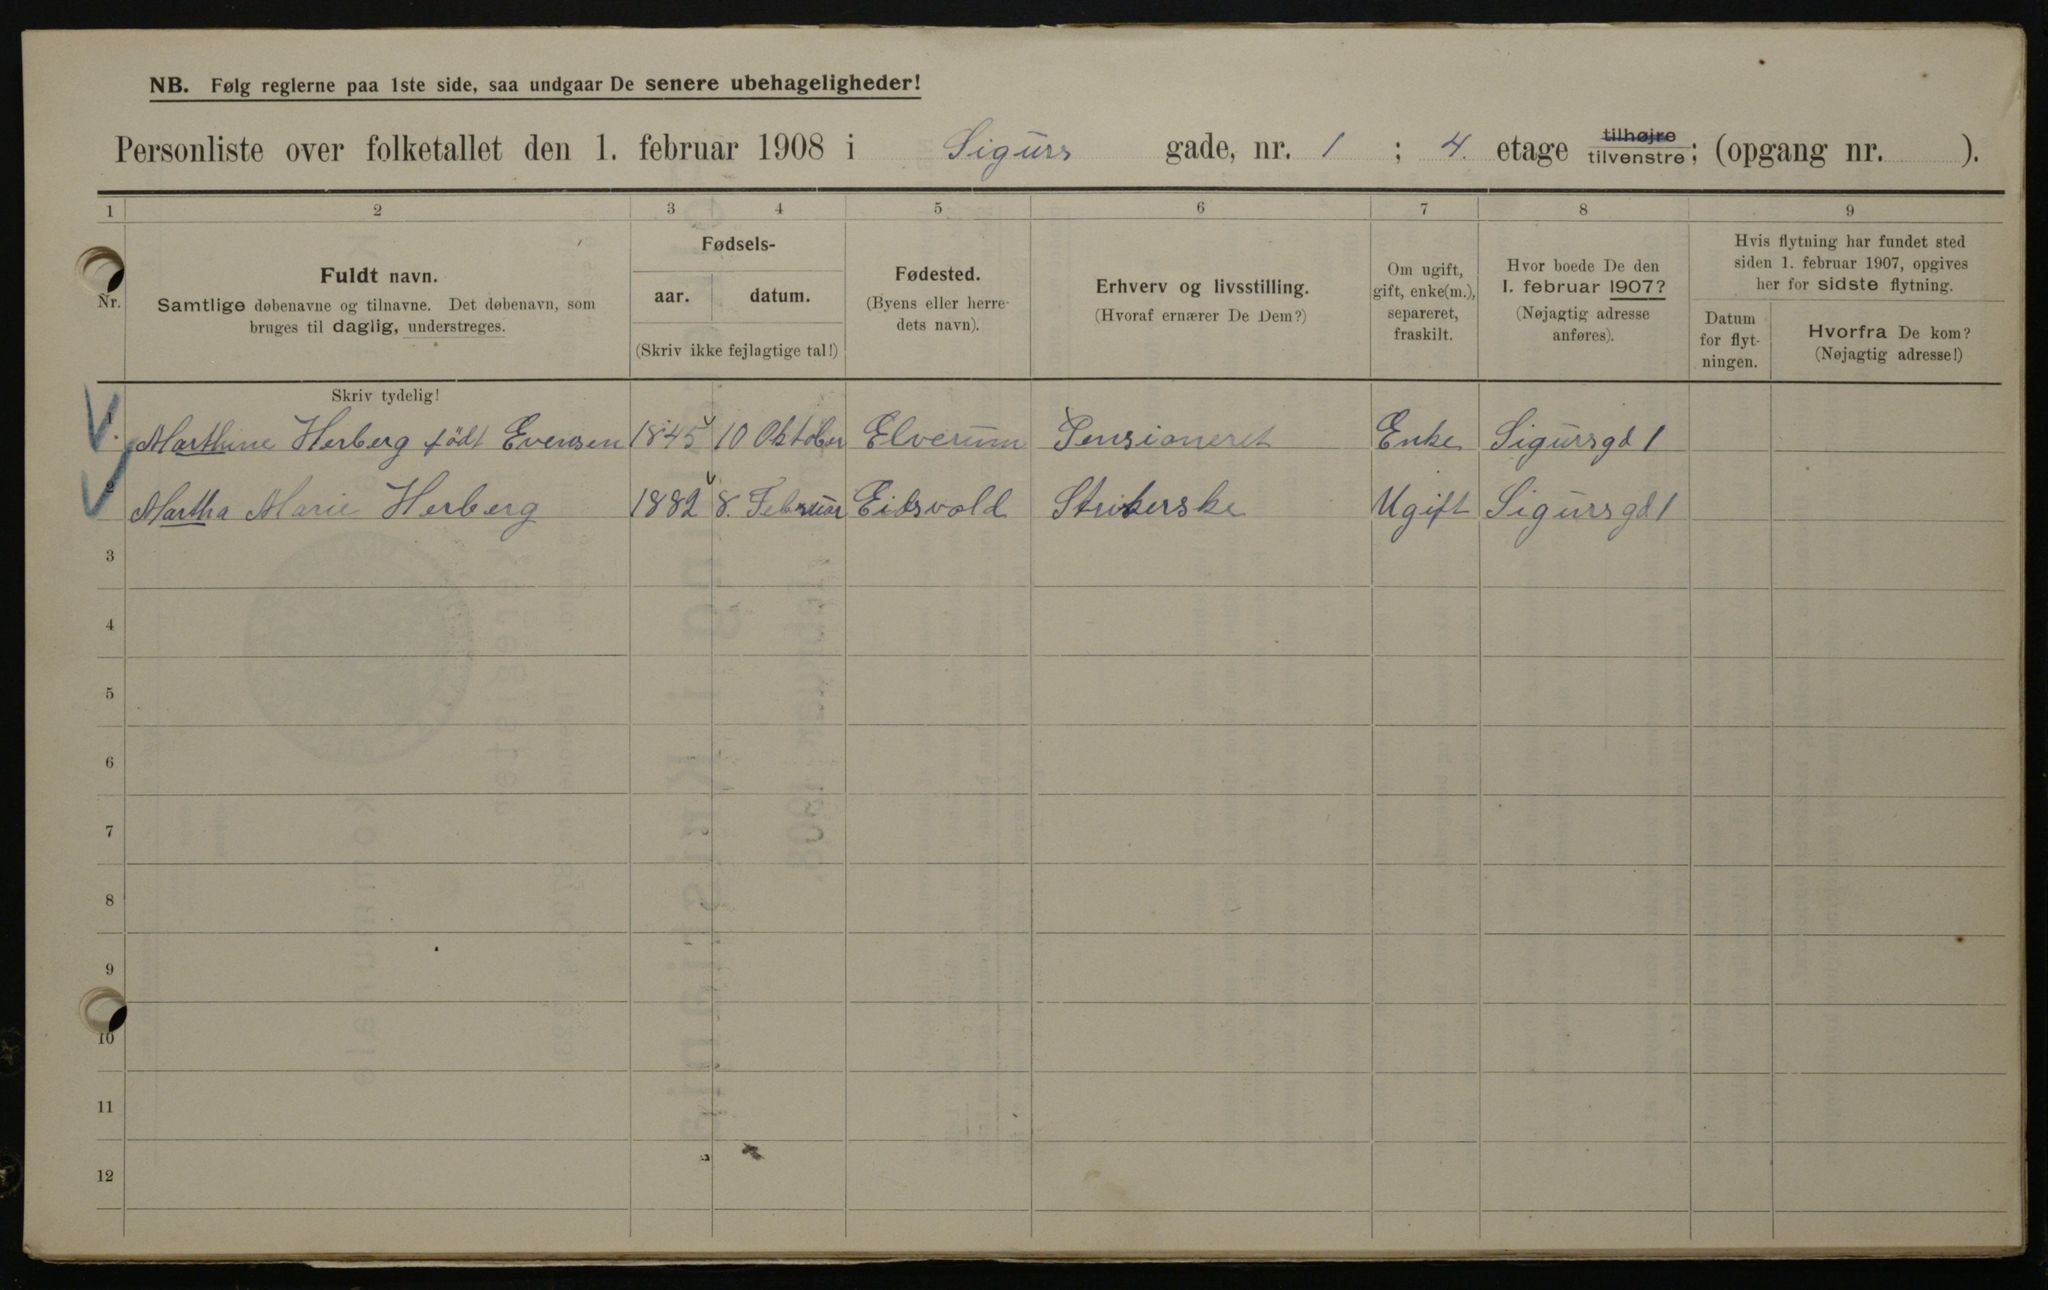 NB. Følg reglerne paa 1ste side, saa undgaar De senere ubehageligheder!
Personliste over folketallet den 1. februar 1908 i Sigurs gade, nr. 1 ; 4. etage tilhøjre tilvenstre; (opgang nr. ).
1 2 3 4 5 6 7 8 9
Nr.
Fuldt navn.
Samtlige døbenavne og tilnavne. Det døbenavn, som
bruges til daglig, understreges.
Fødsels-
aar. datum.
(Skriv ikke fejlagtige tal!)
Fødested.
(Byens eller herre-
dets navn).
Erhverv og livsstilling.
(Hvoraf ernærer De Dem?)
Om ugift,
gift, enke(m.),
separeret,
fraskilt.
Hvor boede De den
1. februar 1907?
(Nøjagtig adresse
anføres).
Hvis flytning har fundet sted
siden 1. februar 1907, opgives
her for sidste flytning.
Datum
for flyt-
ningen.
Hvorfra De kom?
(Nøjagtig adresse!)
Skriv tydelig!
1. Marthine Herberg födt Evensen 1845 10 Oktober Elverum Pensioneret Enke Sigursgd 1
2 Martha Marie Herberg 1882 8. Februar Eidsvold Strikerske Ugift Sigursgd 1
3
4
5
6
7
8
9
10
11
12